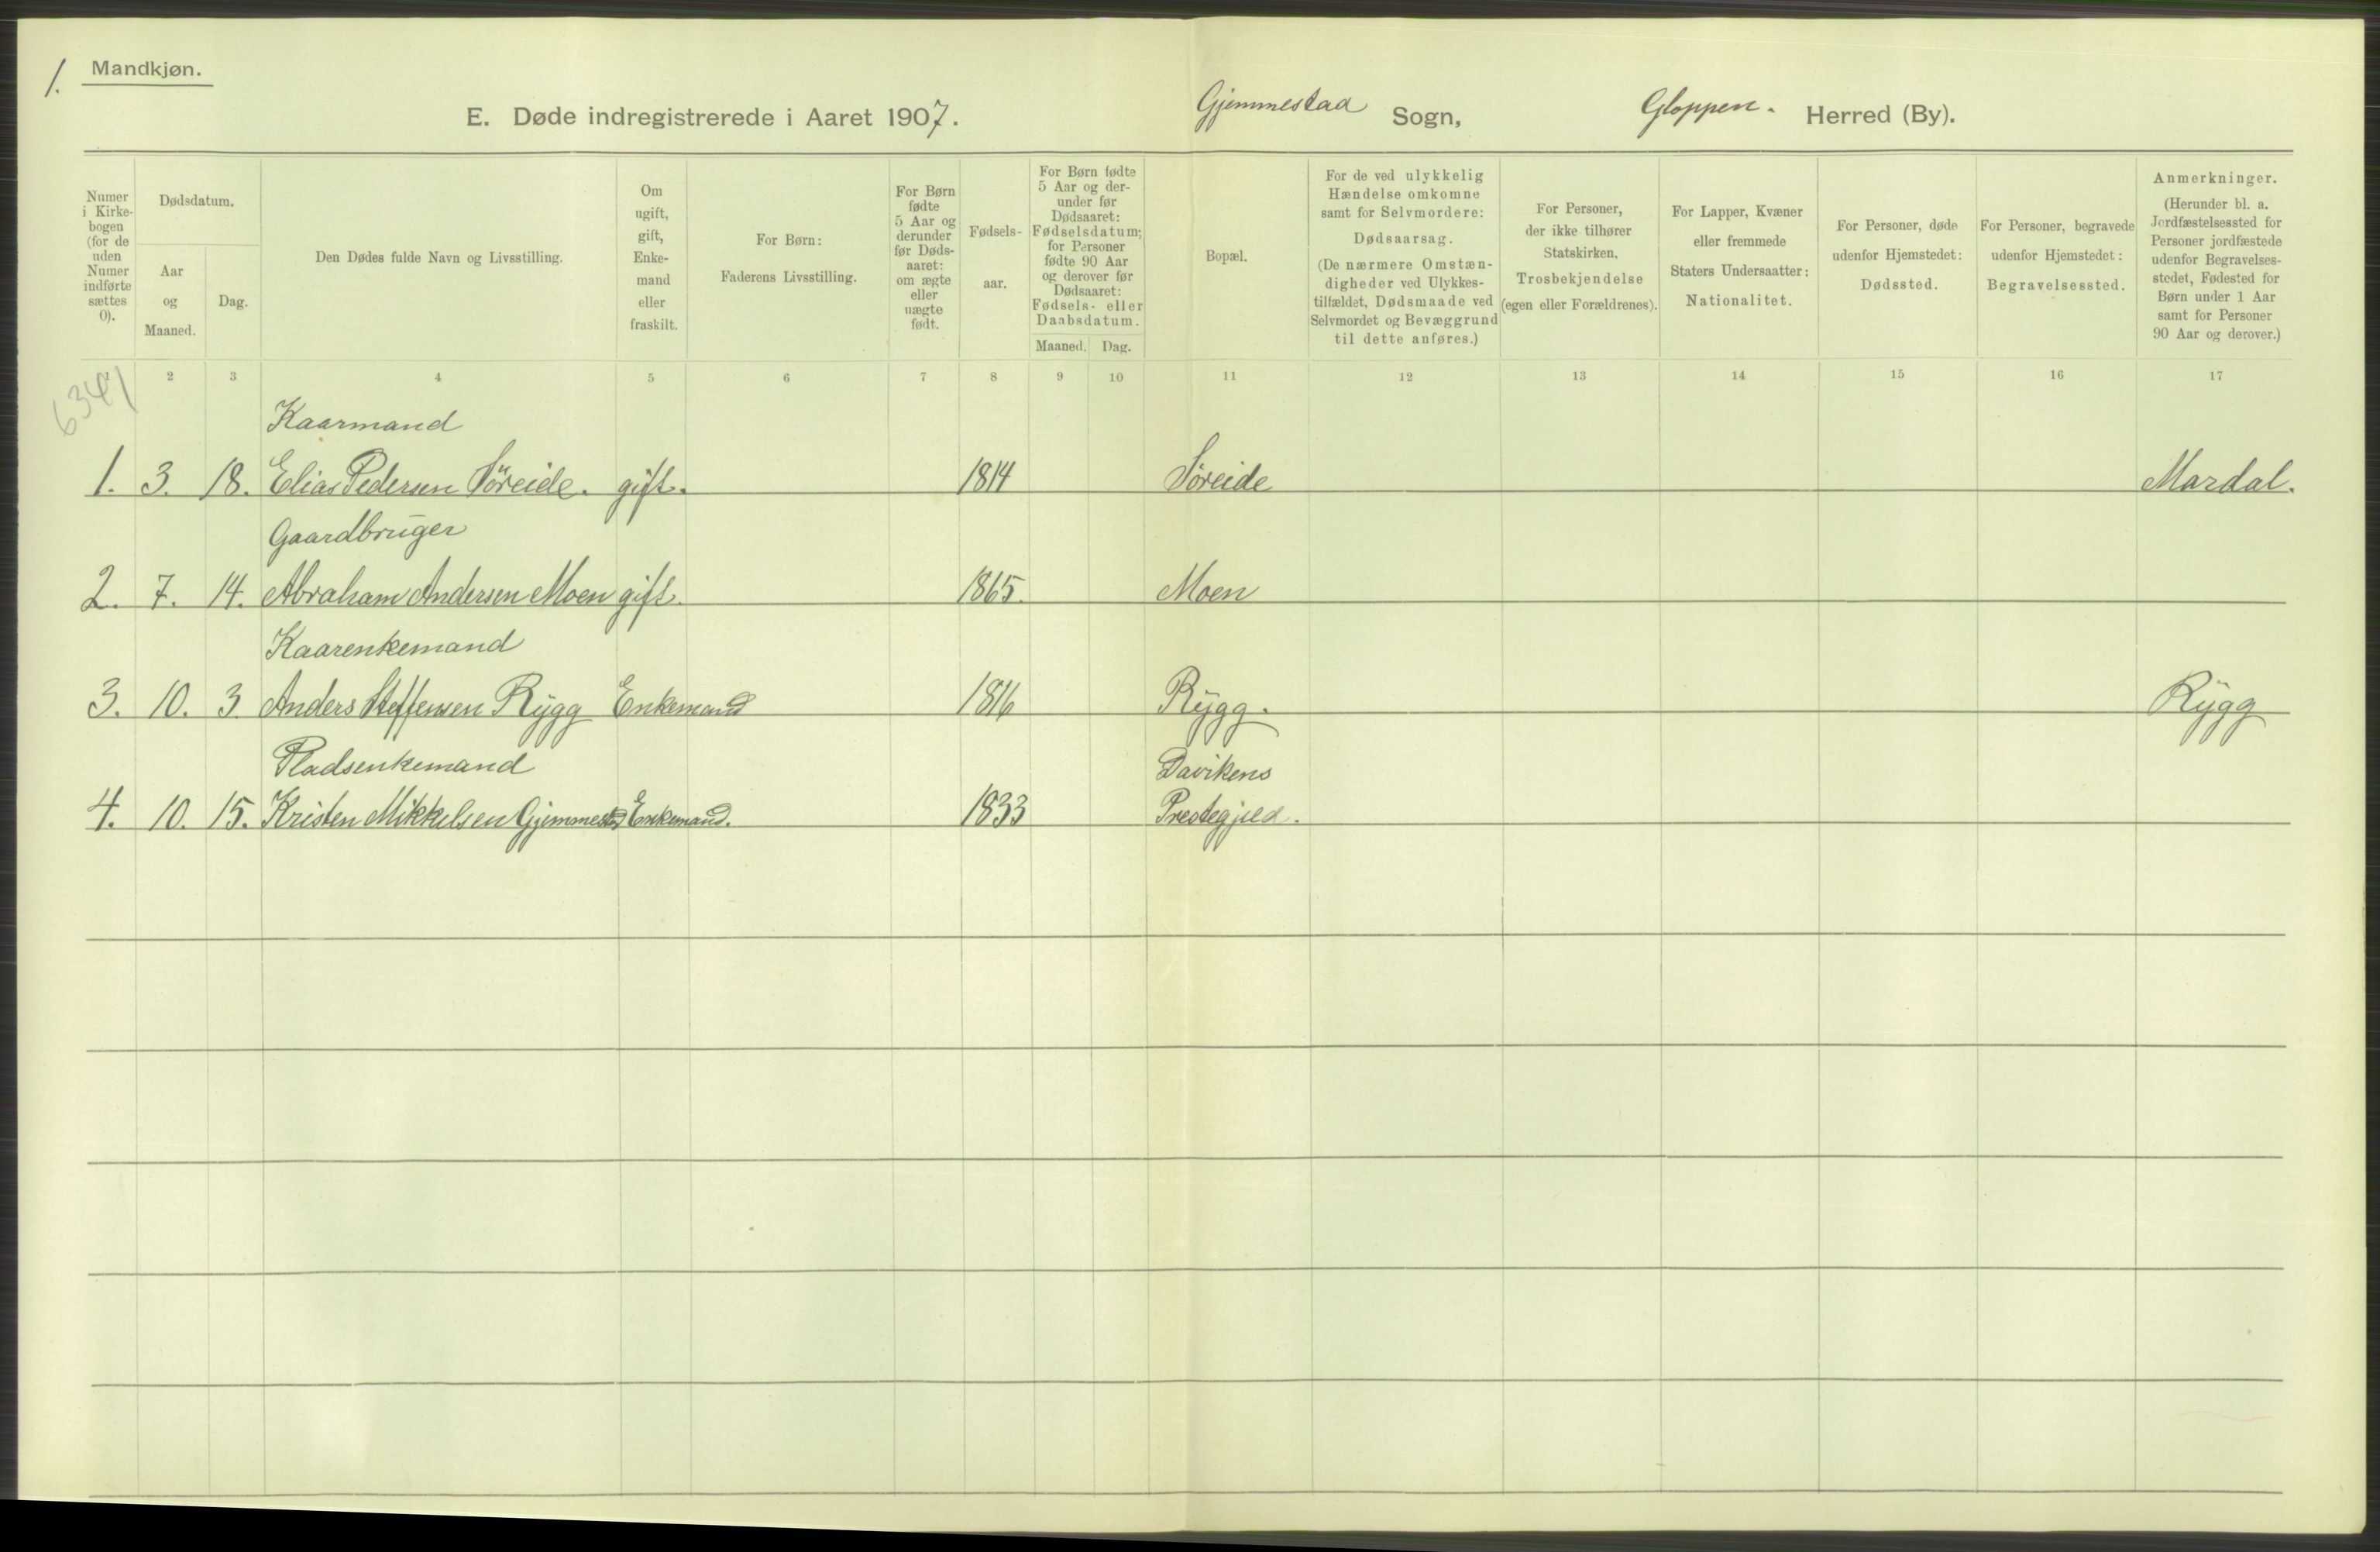 1.
Mandkjøn.
E. Døde indregistrerede i Aaret 1907.
Gjemmestad Sogn,
Gloppen. Herred (By).
Numer
i Kirke-
bogen
(for de
uden
Numer
indførte
sættes
0).
Dødsdatum.
Aar
og
Maaned.
Dag.
Den Dødes fulde Navn og Livsstilling.
Om
ugift,
gift,
Enke-
mand
eller
fraskilt.
For Børn:
Faderens Livsstilling.
For Børn
fødte
5 Aar og
derunder
før Døds-
aaret:
om ægte
eller
uægte
født.
Fødsels-
aar.
For Børn fødte
5 Aar og der-
under før
Dødsaaret:
Fødselsdatum;
for Personer
fødte 90 Aar
og derover før
Dødsaaret:
Fødsels- eller
Daabsdatum.
Maaned. Dag.
Bopæl.
For de ved ulykkelig
Hændelse omkomne
samt for Selvmordere:
Dødsaarsag.
(De nærmere Omstæn-
digheder ved Ulykkes-
tilfældet, Dødsmaade ved
Selvmordet og Bevæggrund
til dette anføres.)
For Personer,
der ikke tilhører
Statskirken,
Trosbekjendelse
(egen eller Forældrenes).
For Lapper, Kvæner
eller fremmede
Staters Undersaatter:
Nationalitet.
For Personer, døde
udenfor Hjemstedet:
Dødssted.
For Personer, begravede
udenfor Hjemstedet:
Begravelsessted.
Anmerkninger.
(Herunder bl. a.
Jordfæstelsessted for
Personer jordfæstede
udenfor Begravelses-
stedet, Fødested for
Børn under 1 Aar
samt for Personer
90 Aar og derover.)
1 2 3 4 5 6 7 8 9 10 11 12 13 14 15 16 17
6341
Kaarmand
1. 3. 18. Elias Pedersen Söreide. gift. 1814 Söreide Mardal.
Gaardbruger
2. 7. 14. Abraham Andersen Moen gift. 1865. Moen
Kaarenkemand
3. 10. 3 Anders Steffensen Rygg Enkemand 1816 Rygg. Rygg
Pladsenkemand Davikens
4. 10. 15. Kristen Mikkelsen Gjemmestad Enkemand. 1833 Prestegjeld.